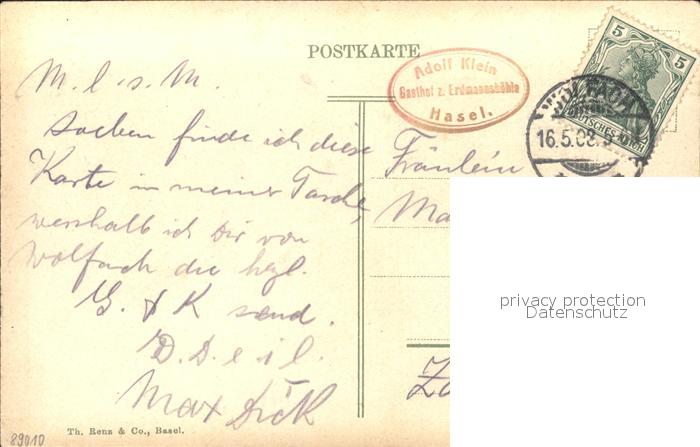 POSTKARTE
Adolf Klein
Gasthof z. Erdmannshöhle
Hasel.
5 5
DEUTSCHES REICH
WOLFACH
16.5.08.
M. l. s. M.
soeben finde ich diese
Karte in meiner Tasche,
weshalb ich Dir von
Wolfach die hzl.
G. & K send.
D. D. e i l.
Max Dick
Fräulein
Ma
privacy protection
Datenschutz
Th. Renz & Co., Basel.
89010